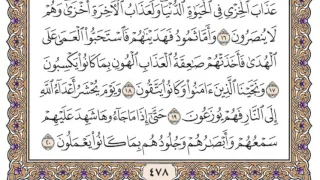 عَذَابَ ٱلْخِزْىِ فِى ٱلْحَيَوٰةِ ٱلدُّنْيَا وَلَعَذَابُ ٱلْـَٔاخِرَةِ أَخْزَىٰ وَهُمْ
لَا يُنصَرُونَ ١٦ وَأَمَّا ثَمُودُ فَهَدَيْنَٰهُمْ فَٱسْتَحَبُّوا۟ ٱلْعَمَىٰ عَلَى
ٱلْهُدَىٰ فَأَخَذَتْهُمْ صَٰعِقَةُ ٱلْعَذَابِ ٱلْهُونِ بِمَا كَانُوا۟ يَكْسِبُونَ
١٧ وَنَجَّيْنَا ٱلَّذِينَ ءَامَنُوا۟ وَكَانُوا۟ يَتَّقُونَ ١٨ وَيَوْمَ يُحْشَرُ أَعْدَآءُ ٱللَّهِ
إِلَى ٱلنَّارِ فَهُمْ يُوزَعُونَ ١٩ حَتَّىٰٓ إِذَا مَا جَآءُوهَا شَهِدَ عَلَيْهِمْ
سَمْعُهُمْ وَأَبْصَٰرُهُمْ وَجُلُودُهُم بِمَا كَانُوا۟ يَعْمَلُونَ ٢٠
٤٧٨